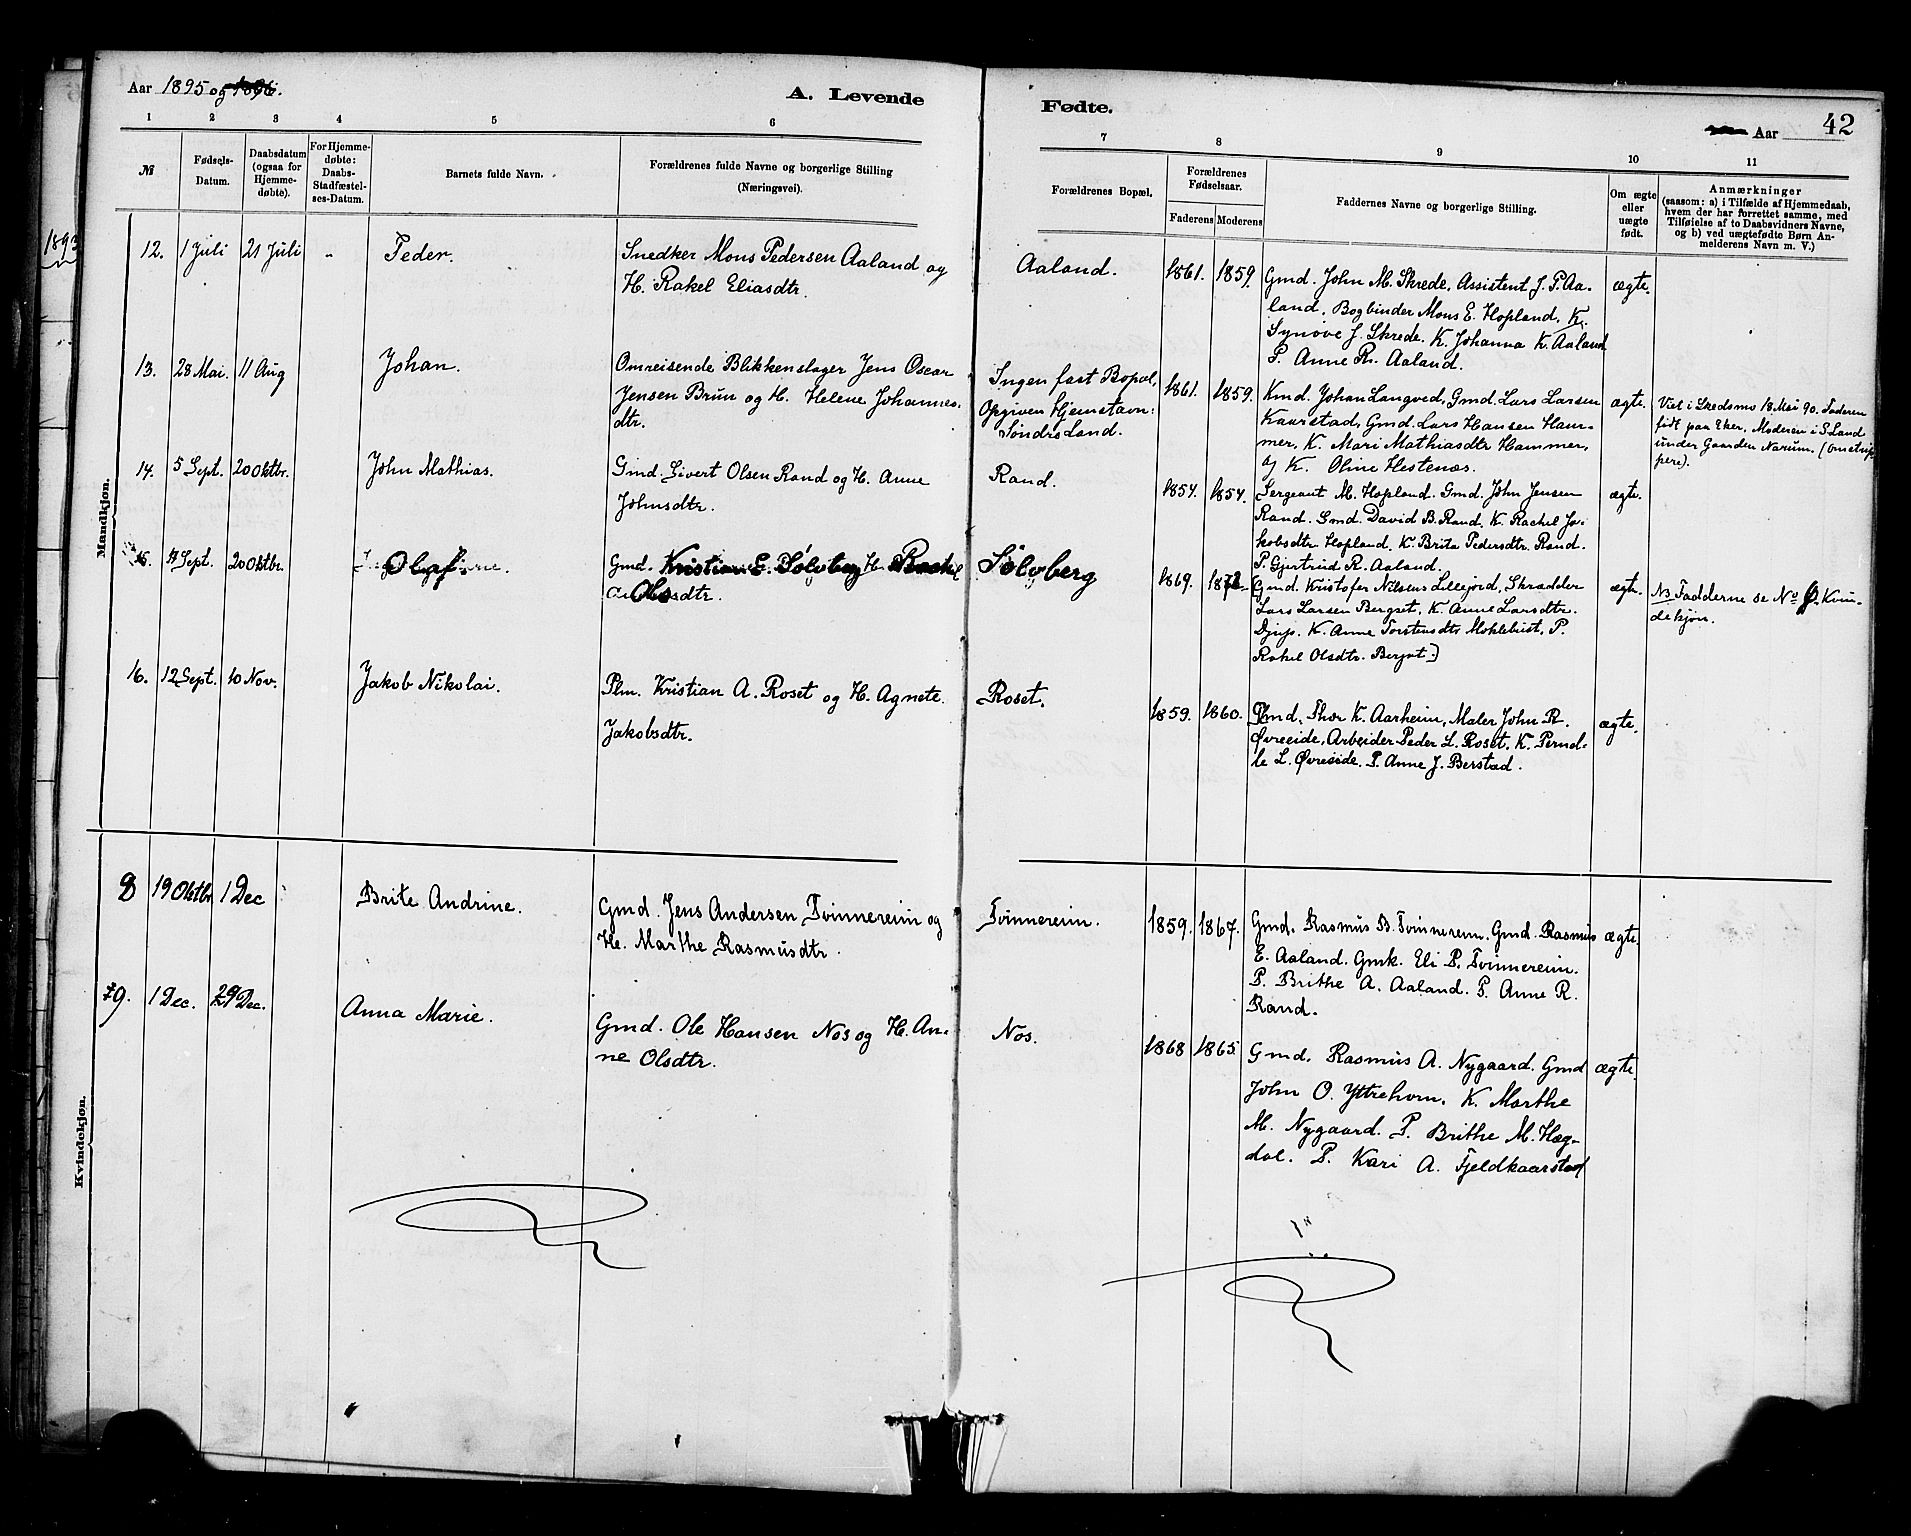 Aar 1895 og 1896.
A. Levende
Fødte.
Aar
42
1 2 3 4 5 6 7 8 9 10 11
№
Fødsels-
Datum.
Daabsdatum
(ogsaa for
Hjemme-
døbte).
For Hjemme-
døbte:
Daabs-
Stadfæstel-
ses-Datum.
Barnets fulde Navn.
Forældrenes fulde Navne og borgerlige Stilling
(Næringsvei).
Forældrenes Bopæl.
Forældrenes
Fødselsaar.
Faderens Moderens
Faddernes Navne og borgerlige Stilling.
Om ægte
eller
uægte
født.
Anmærkninger
(saasom: a) i Tilfælde af Hjemmedaab,
hvem der har forrettet samme, med
Tilføielse af to Daabsvidners Navne,
og b) ved uægtefødte Børn An-
melderens Navn m. V.)
Mandkjøn.
12. 1 Juli 21 Juli "
Peder.
Snedker Mons Pedersen Aaland og
H. Rakel Eliasdtr.
Aaland.
1861. 1859.
Gmd. John M. Skrede, Assistent J. P. Aa-
land, Bogbinder Mons E. Hopland, K.
Synøve J. Skrede. K. Johanna K. Aaland
P. Anne R. Aaland.
ægte.
13. 28 Mai. 11 Aug
Johan.
Omreisende Blikkenslager Jens Oscar
Jensen Brun og H. Helene Johannes-
dtr.
Ingen fast Bopæl,
Opgiven Hjemstavn:
Søndre Land.
1861. 1859.
Kmd. Johan Langved, Gmd. Lars Larsen
Kaarstad, Gmd. Lars Hansen Ham-
mer, K. Mari Mathiasdtr Hammer,
og K. Oline Hestenæs.
ægte.
Viet i Skedsmo 18 Mai 90. Faderen
født paa Eker, Moderen i S. Land
under Gaarden Narum. (omstrip-
pere).
14. 5 Sept. 20 Oktbr.
John Mathias.
Gmd. Sivert Olsen Rand og H. Anne
Johnsdtr.
Rand.
1857. 1857.
Sergeant M. Hopland. Gmd. John Jensen
Rand. Gmd. David B. Rand. K. Rachel Ja-
kobsdtr Hopland. K. Brita Pedersdtr. Rand.
P. Gjertrud R. Aaland.
ægte.
15. Sept. 20 Oktbr.
Olaf.
Gmd. Kristian E. Sølvberg H. Rachel
Olsdtr.
Sølvberg
1869. 1872
(Gmd. Kristofer Nilsens Lillejord, Skrædder
Lars Larsen Bergset, K. Anne Larsdtr.
Djup. K. Anne Torstensdtr Moklebust, P.
Rakel Olsdtr. Bergset.)
ægte.
NB Fadderne se No 9. Kvin-
dekjøn.
16. 12 Sept. 10 Nov.
Jakob Nikolai.
Plm. Kristian A. Roset og H. Agnete
Jakobsdtr.
Roset.
1859. 1860.
Gmd. Thor K. Aarheim, Maler John R.
Øvreeide, Arbeider Peder L. Roset. K. Pernil-
le L. Øvreeide. P. Anne J. Berstad.
ægte.
Kvindekjøn.
8 19 Oktbr 1 Dec
Brite Andrine.
Gmd. Jens Andersen Tvinnereim og
H. Marthe Rasmusdtr.
Tvinnereim.
1859. 1867.
Gmd. Rasmus B. Tvinnereim. Gmd. Rasmus
E. Aaland. Gmk. Eli P. Tvinnereim.
P. Brithe A. Aaland. P. Anne R.
Rand.
ægte.
9. 1 Dec. 29 Dec.
Anna Marie.
Gmd. Ole Hansen Nos og H. An-
ne Olsdtr.
Nos.
1868 1865.
Gmd. Rasmus A. Nygaard. Gmd
John O. Yttrehorn. K. Marthe
M. Nygaard. P. Brithe M. Hæg-
dal. P. Kari A. Fjeldkaarstad
ægte.